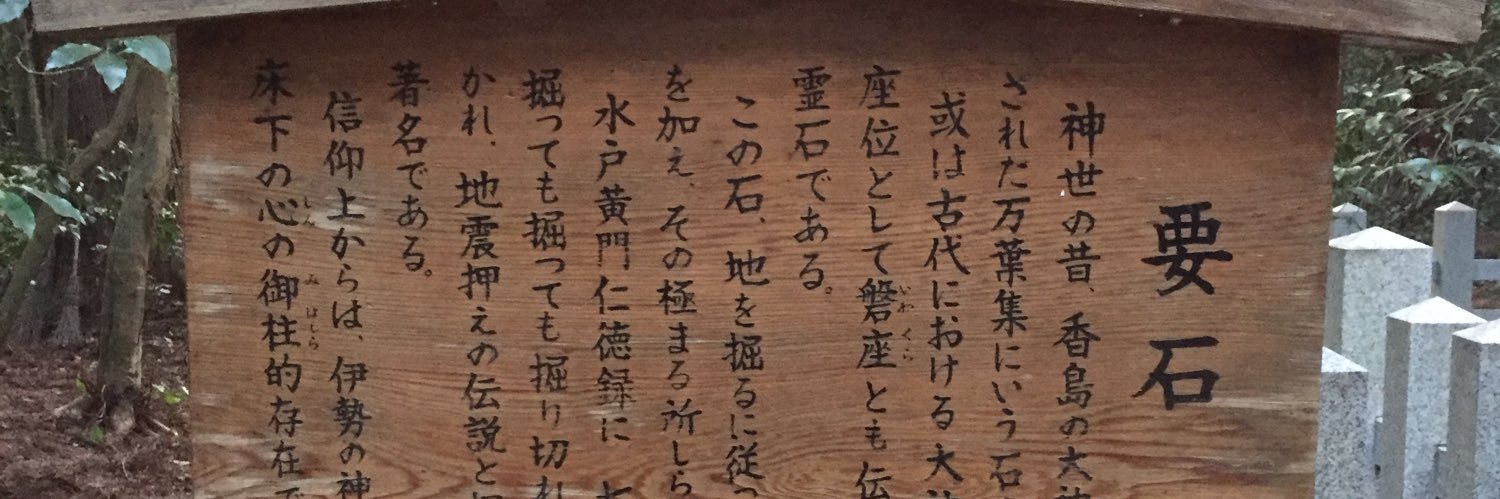 要石
神世の昔、香島の大神
された万葉集にいう石
或は古代における大神
座位として磐座とも伝
いわくら
霊石である。
この石、地を掘るに従っ
を加え、その極まる所しら
水戸黄門仁徳録に
掘っても掘っても掘り切れ
かれ、地震押えの伝説と
著名である。
信仰上からは、伊勢の神
床下の心の御柱的存在で
しん
みはしら